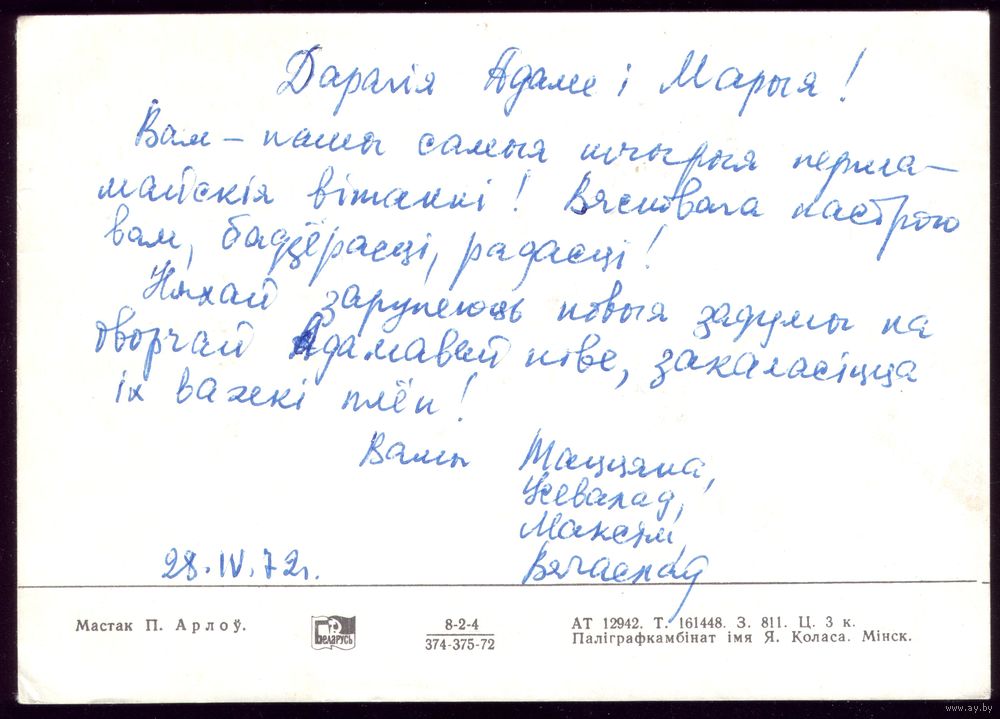 Дарагія Адаме і Марыя!
Вам – нашы самыя шчырыя перша-
майскія вітанні! Вясновага настрою
вам, бадзёрасці, радасці!
Няхай зарунеюць новыя задумы на
творчай Адамавай ніве, закаласіцца
іх важкі плён!
Вашы Таццяна,
Усевалад,
Максім,
Вячаслаў
28.IV.72г.
Мастак П. Арлоў.
Беларусь
8-2-4
374-375-72
АТ 12942. Т. 161448. З. 811. Ц. 3 к.
Паліграфкамбінат імя Я. Коласа. Мінск.
www.ay.by